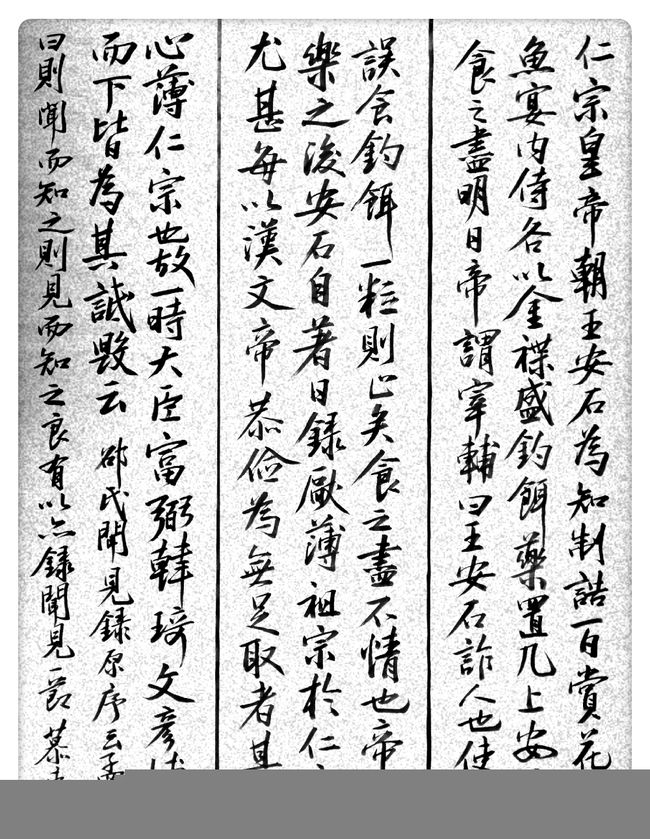 仁宗皇帝朝王安石為知制誥一日賞花
魚宴內侍各以金楪盛釣餌藥置几上安
食之盡明日帝謂宰輔曰王安石詐人也使
誤食釣餌一粒則止矣食之盡不情也帝
樂之後安石自著日錄厭薄祖宗於仁
尤甚每以漢文帝恭儉為無足取者其
心薄仁宗也故一時大臣富弼韓琦文彥
而下皆為其詆毀云 邵氏聞見錄原序云孟
曰則聞而知之則見而知之良有以亦錄聞見一節 慕